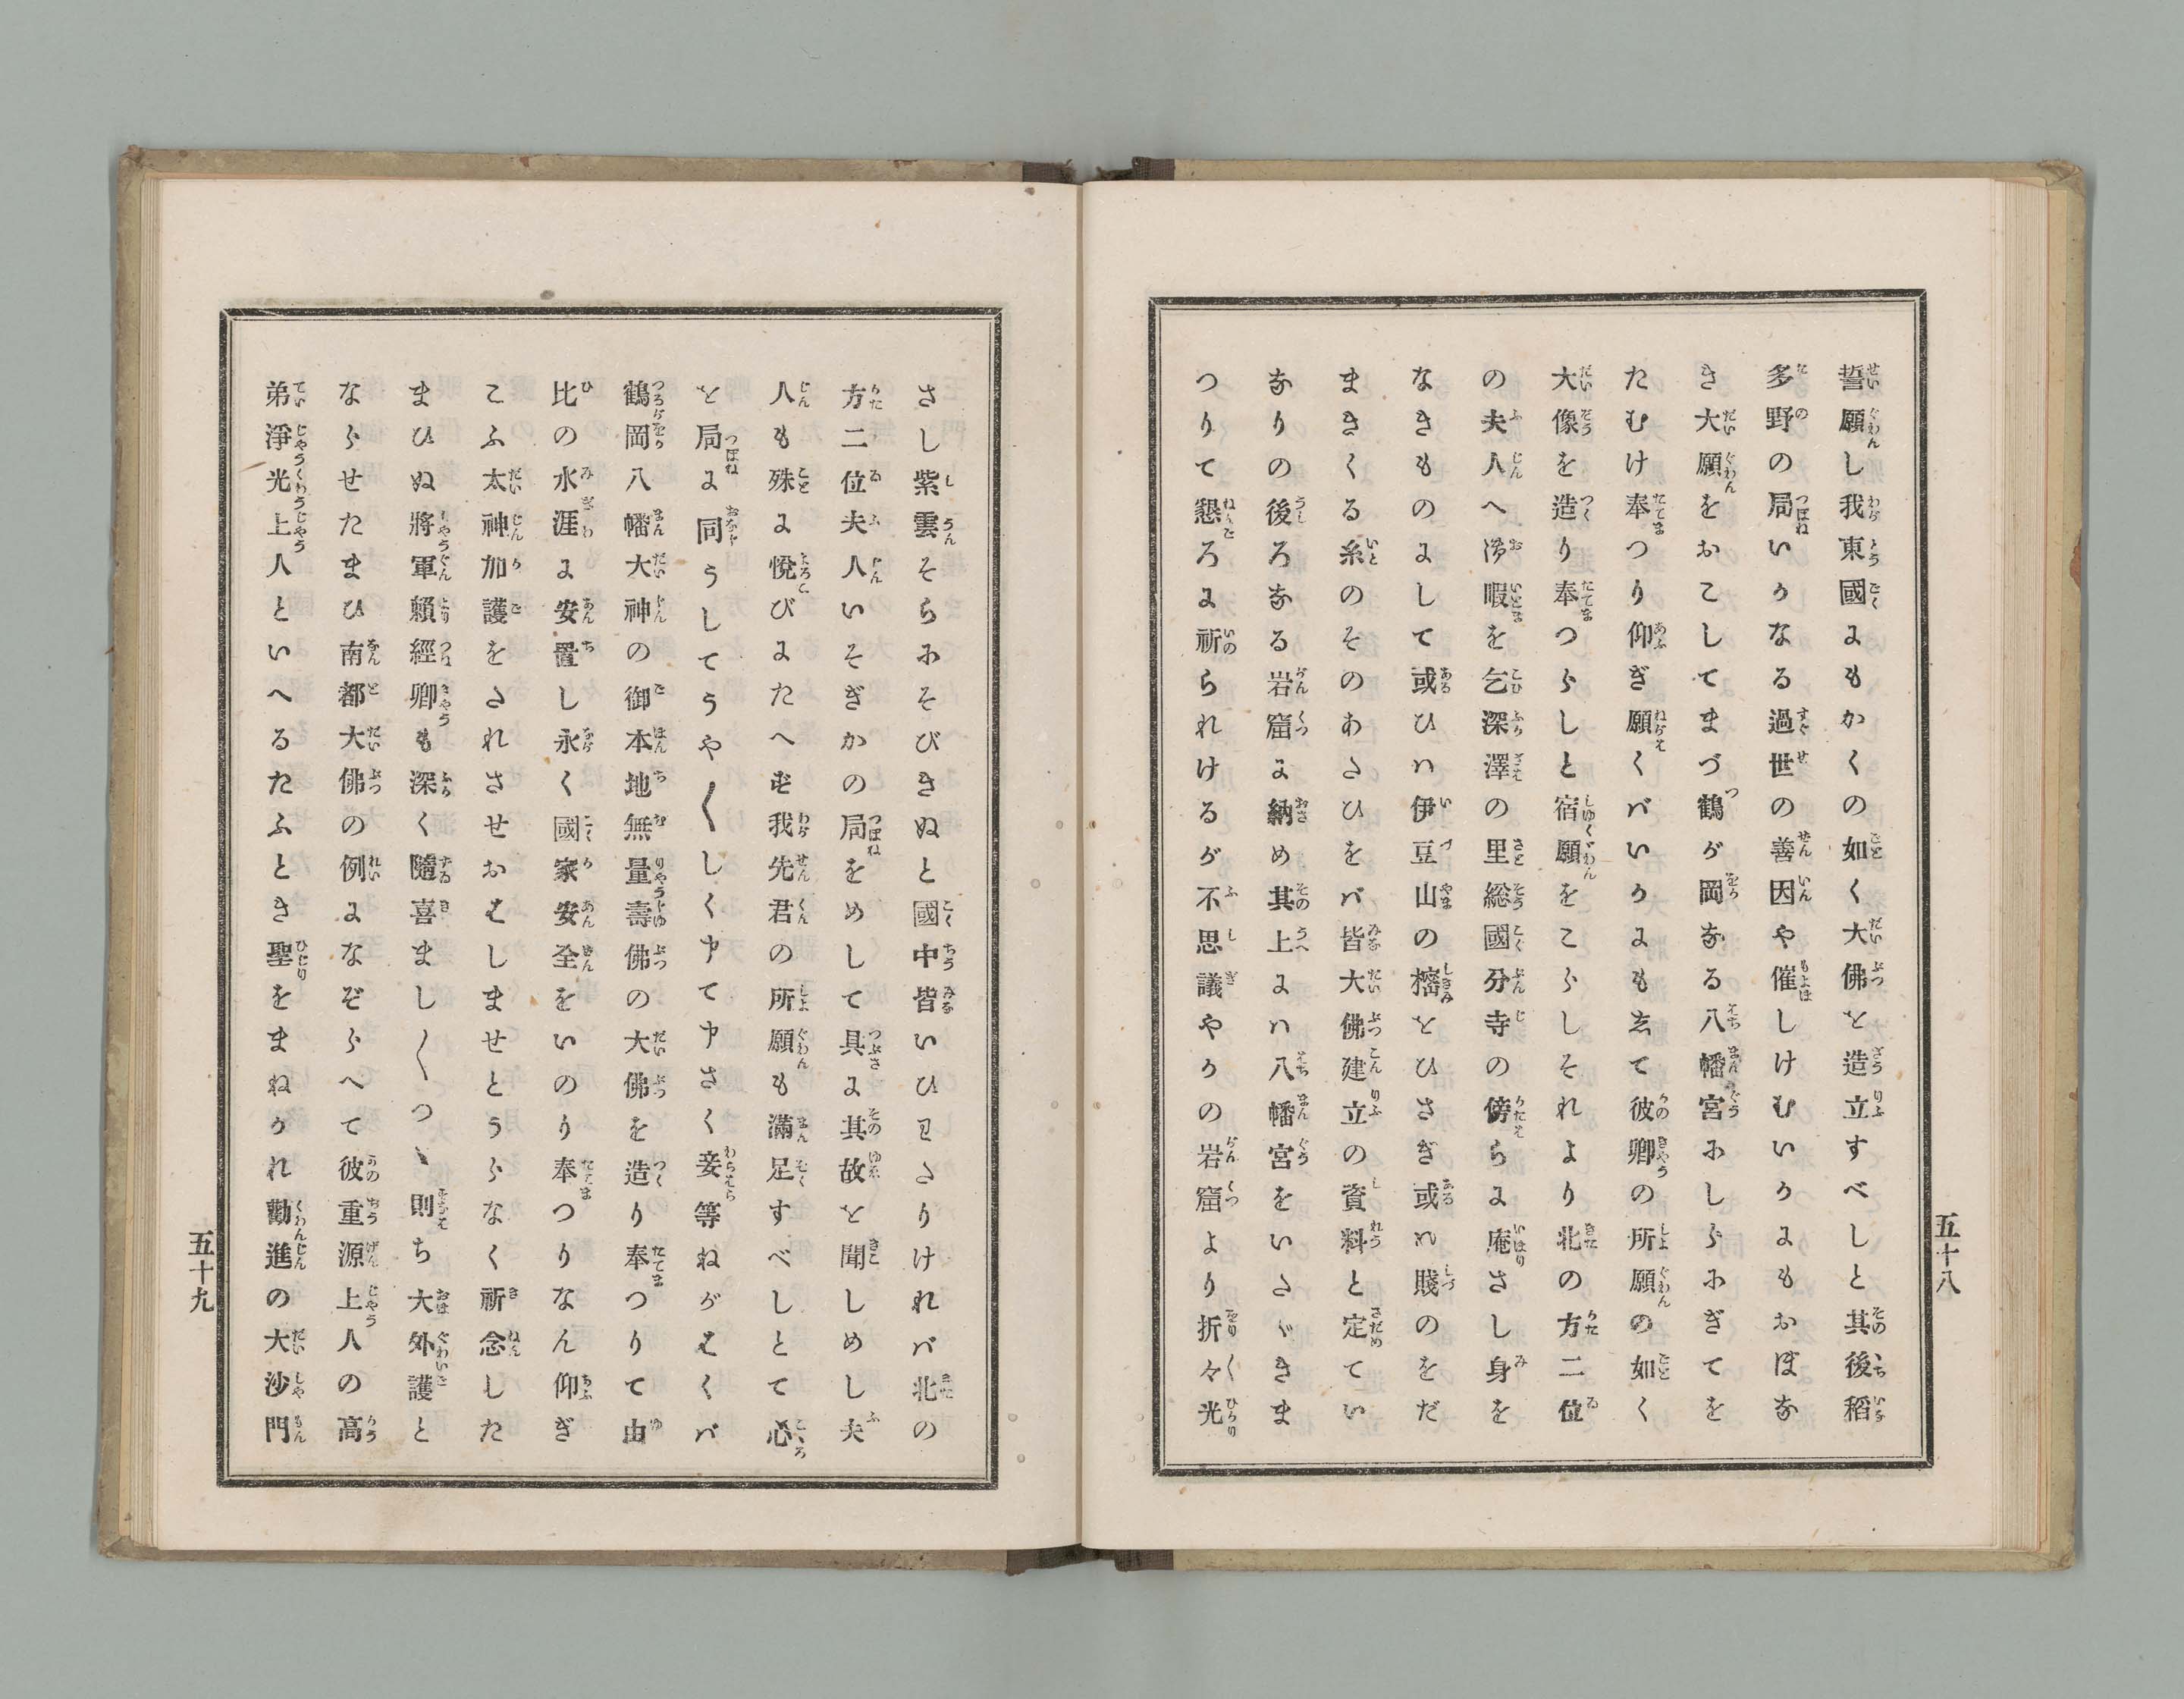 誓願し我東國にもかくの如く大佛を造立すべしと其後稻
多野の局いかなる過世の善因や催しけむいかにもおぼな
き大願をおこしてまづ鶴が岡なる八幡宮にしらにぎてを
たむけ奉つり仰ぎ願くバいかにもゑて彼卿の所願の如く
大像を造り奉つらしと宿願をこらしそれより北の方二位
の夫人へ御暇を乞深澤の里総國分寺の傍らに庵さし身を
なきものにして或ひハ伊豆山の樒をひさぎ或ハ賤のをだ
まきくる糸のそのあさひをバ皆大佛建立の資料と定てい
なりの後ろなる岩窟に納め其上にハ八幡宮をいさゞきま
つりて懇ろに祈られけるが不思議やかの岩窟より折々光
五十八
さし紫雲そらにそびきぬと國中皆いひはさりけれバ北の
方二位夫人いそぎかの局をめして具に其故を聞しめし夫
人も殊に悦びにたへ我先君の所願も滿足すべしとて心
を局に同うしてうや〳〵しく申て申さく妾等ねがはくバ
鶴岡八幡大神の御本地無量壽佛の大佛を造り奉つりて由
比の水涯に安置し永く國家安全をいのり奉つりなん仰ぎ
こふ太神加護をされさせおはしませとうらなく祈念した
まひぬ將軍賴經卿も深く隨喜まし〳〵つゝ則ち大外護と
ならせたまひ南都大佛の例になぞらへて彼重源上人の高
弟淨光上人といへるたふとき聖をまねかれ勸進の大沙門
五十九